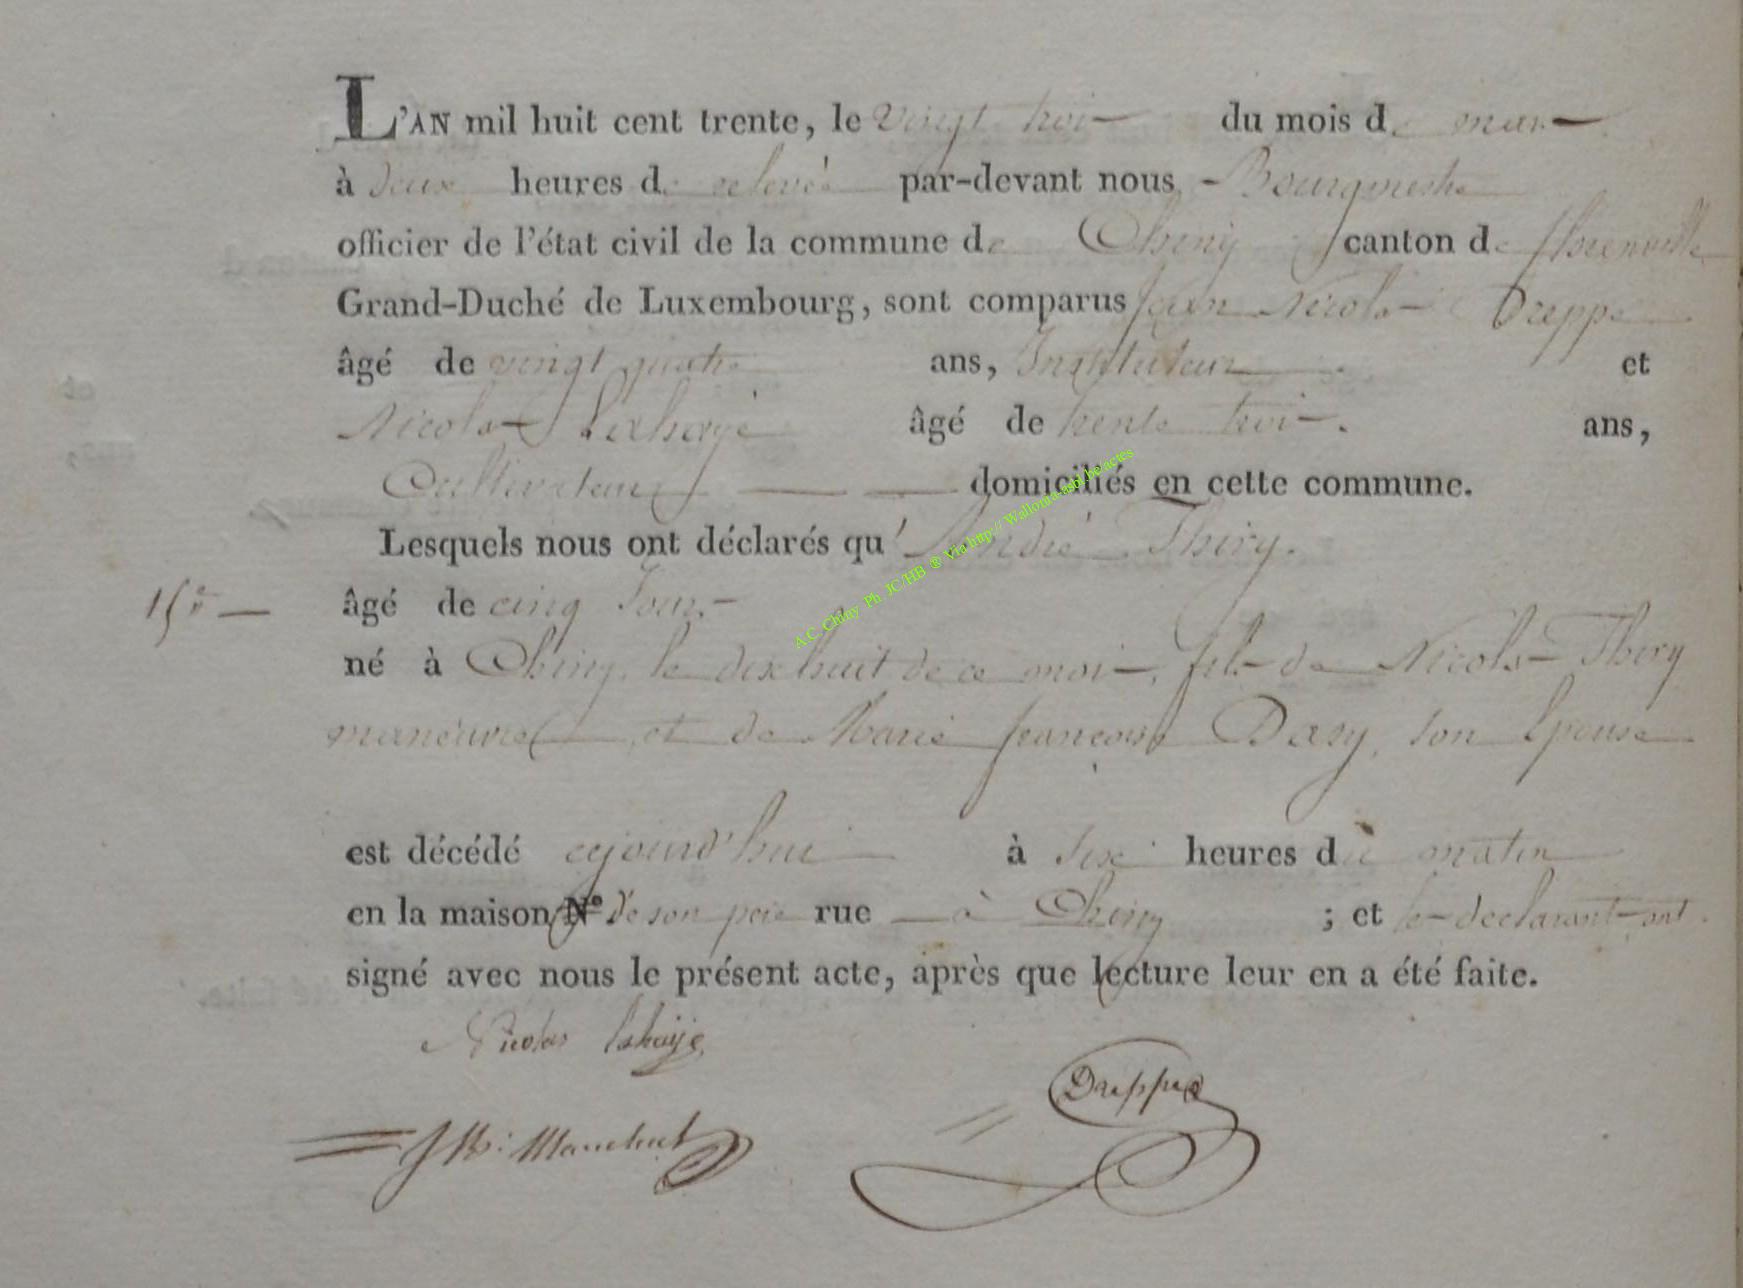 L'AN mil huit cent trente, le vingt trois du mois de mars
à deux heures de relevée par-devant nous Bourgmestre
officier de l'état civil de la commune de Chiny canton de
Grand-Duché de Luxembourg, sont comparus Jean Nicolas Dreppe
âgé de vingt quatre ans, Instituteur et
Nicolas Lahaye âgé de trente trois ans,
Cultivateur domiciliés en cette commune.
Lesquels nous ont déclarés qu' André Thiry.
âgé de cinq Jours
né à Chiny le dix huit de ce mois, fils de Nicolas Thiry
manœuvre et de Marie françoise Dasy, son Epouse
est décédé cejourd'hui à six heures du matin
en la maison N° de son pere rue à Chiny ; et les declarants ont
signé avec nous le présent acte, après que lecture leur en a été faite.
Nicolas lahaije
Dreppe
A.C. Chiny Ph. JC/HB ® Via http:// Wallonia-asbl.be/actes